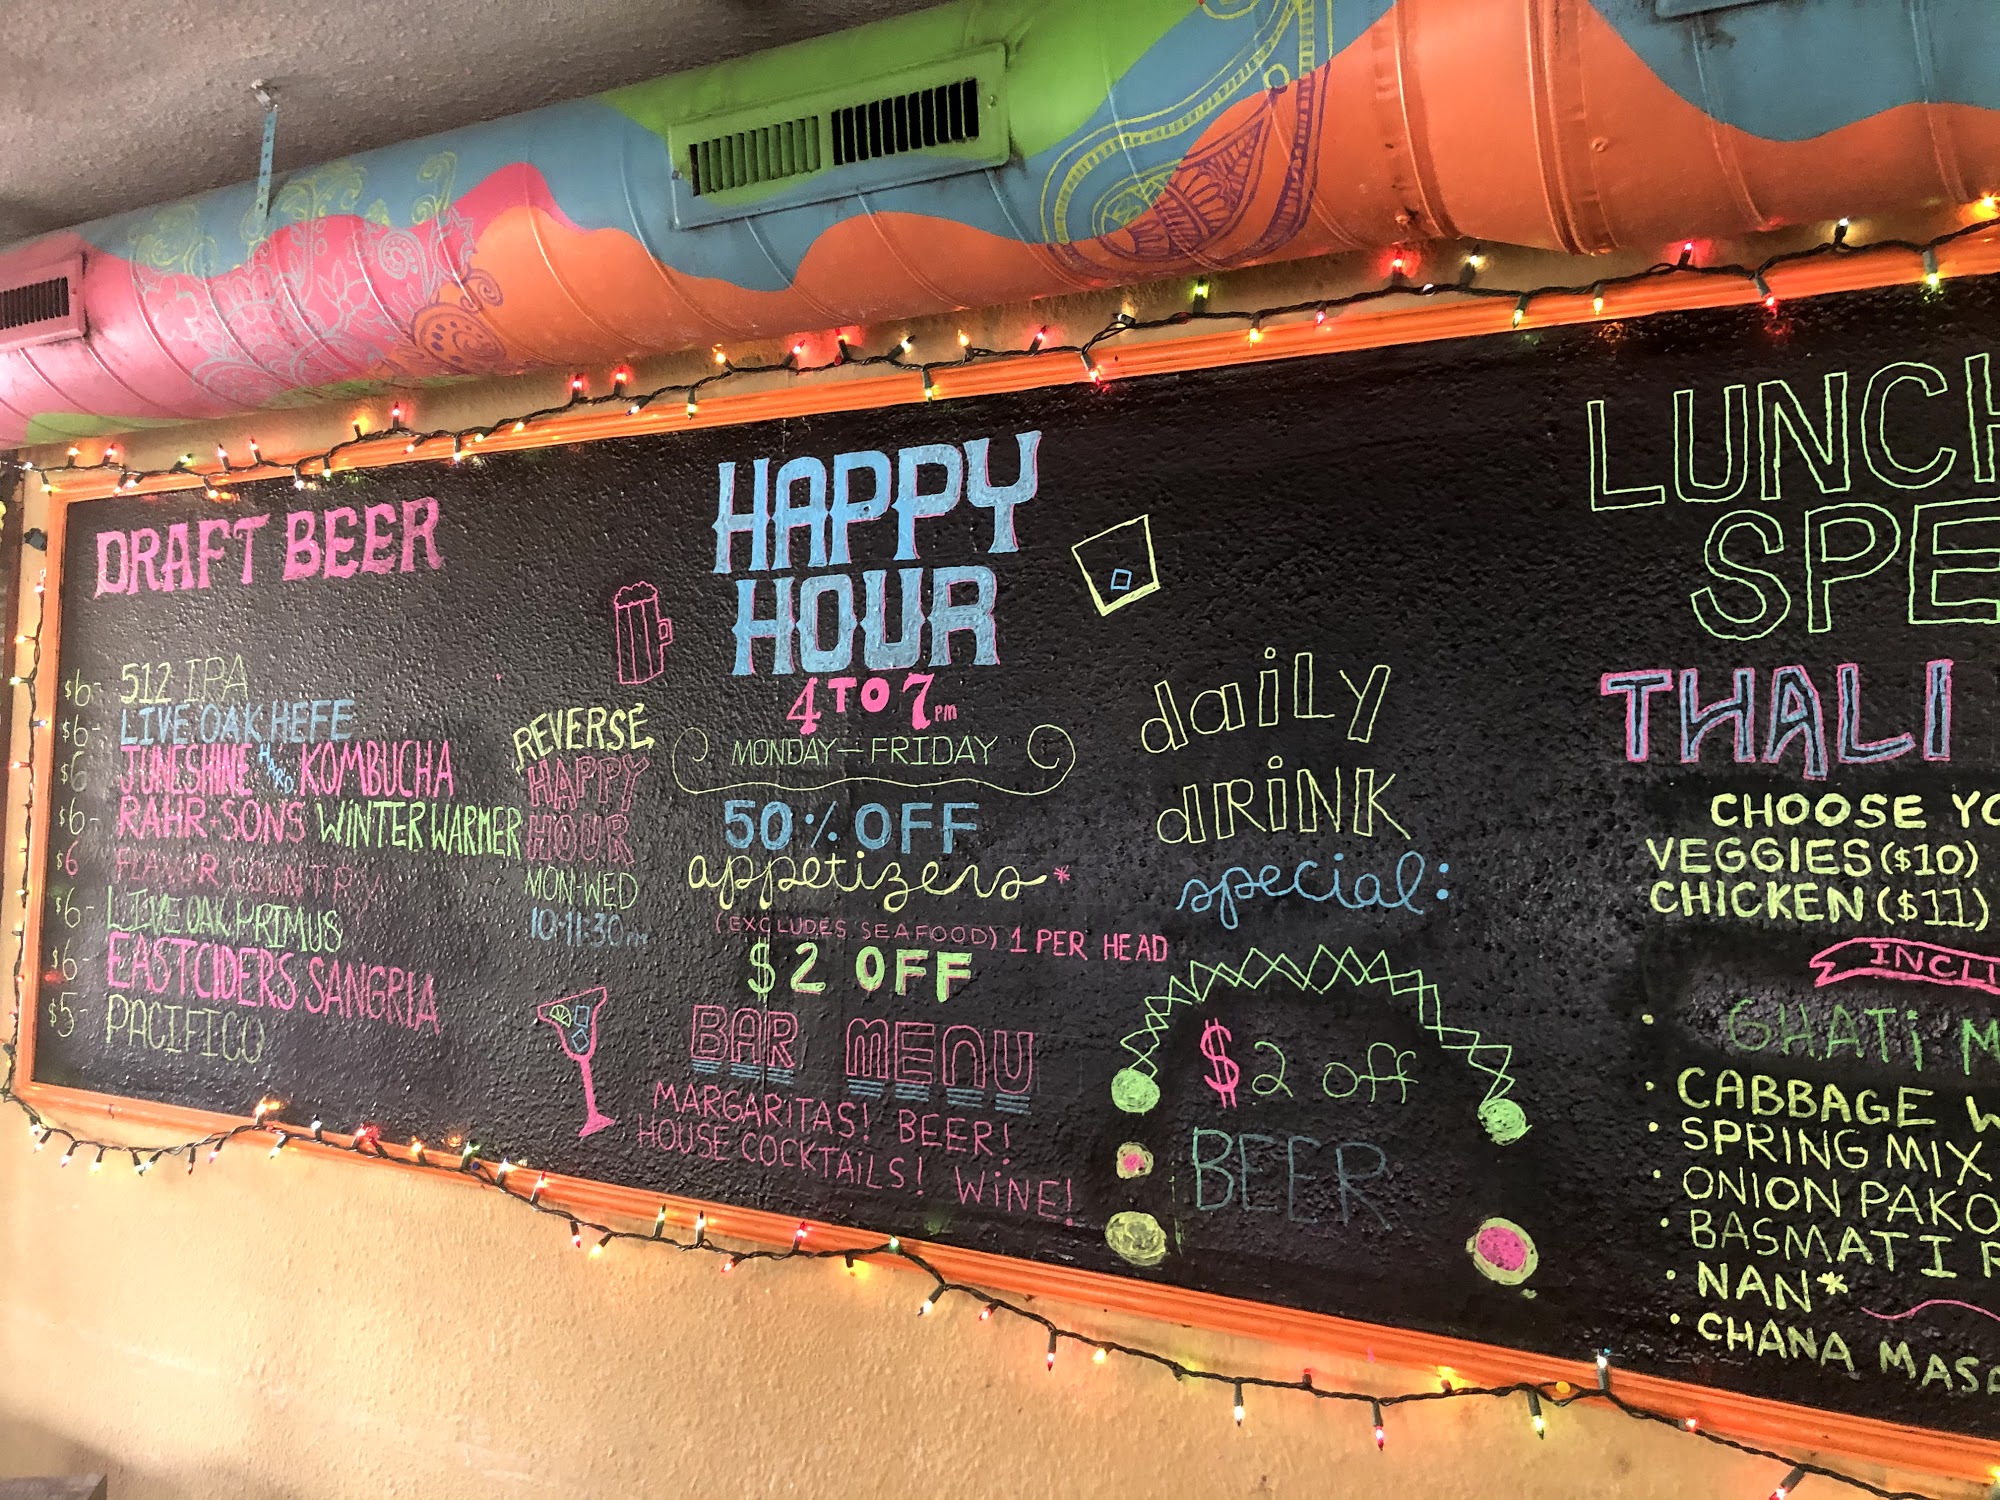 DRAFT BEER
$6- 512 IPA
$6- LIVE OAK HEFE
$6 JUNESHINE HARD KOMBUCHA
$6- RAHR-SONS WINTER WARMER
$6 FLAVOR COUNTRY
$6- LIVE OAK PRIMUS
$6- EASTCIDERS SANGRIA
$5- PACIFICO
REVERSE
HAPPY
HOUR
MON-WED
10-11:30PM
HAPPY
HOUR
4 TO 7PM
MONDAY-FRIDAY
50% OFF
appetizers*
(EXCLUDES SEAFOOD) 1 PER HEAD
$2 OFF
BAR MENU
MARGARITAS! BEER!
HOUSE COCKTAILS! WINE!
daily
dRiNK
special:
$2 off
BEER
LUNCH
SPE
THALI
CHOOSE YO
VEGGIES ($10)
CHICKEN ($11)
INCL
GHATi M
• CABBAGE W
• SPRING MIX
• ONION PAKO
• BASMATI R
• NAN*
• CHANA MASA